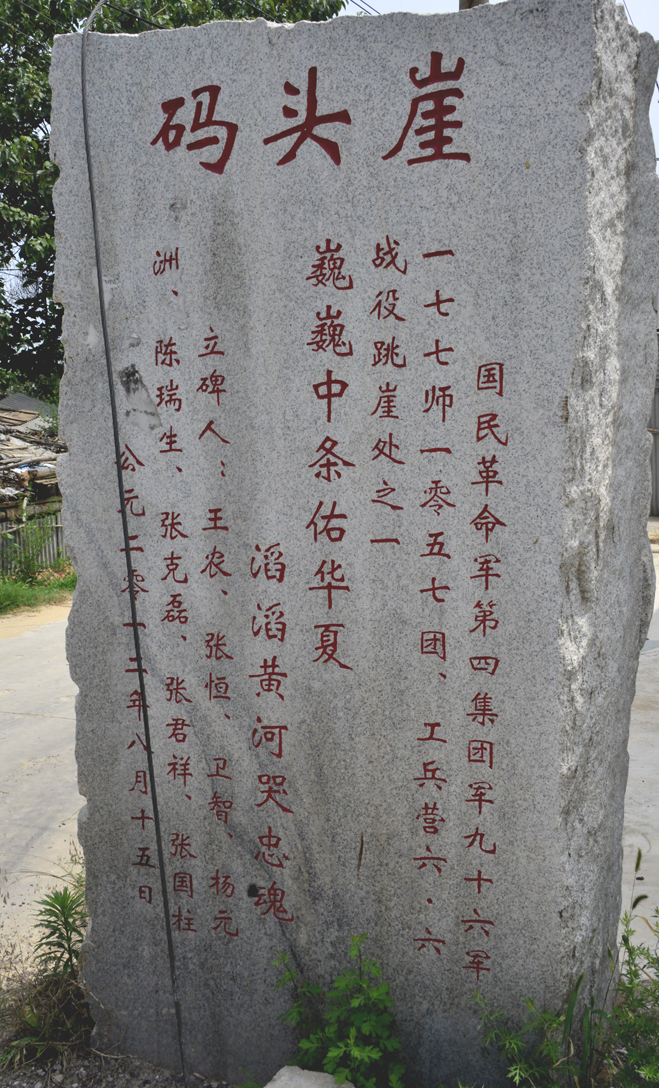 崖头码
国民革命军第四集团军九十六军
一七七师一零五七团、工兵营六·六
战役跳崖处之一
巍巍中条佑华夏
滔滔黄河哭忠魂
立碑人：王农、张恒、卫智、杨元
洲、陈瑞生、张克磊、张君祥、张国柱
公元二零一二年八月十五日